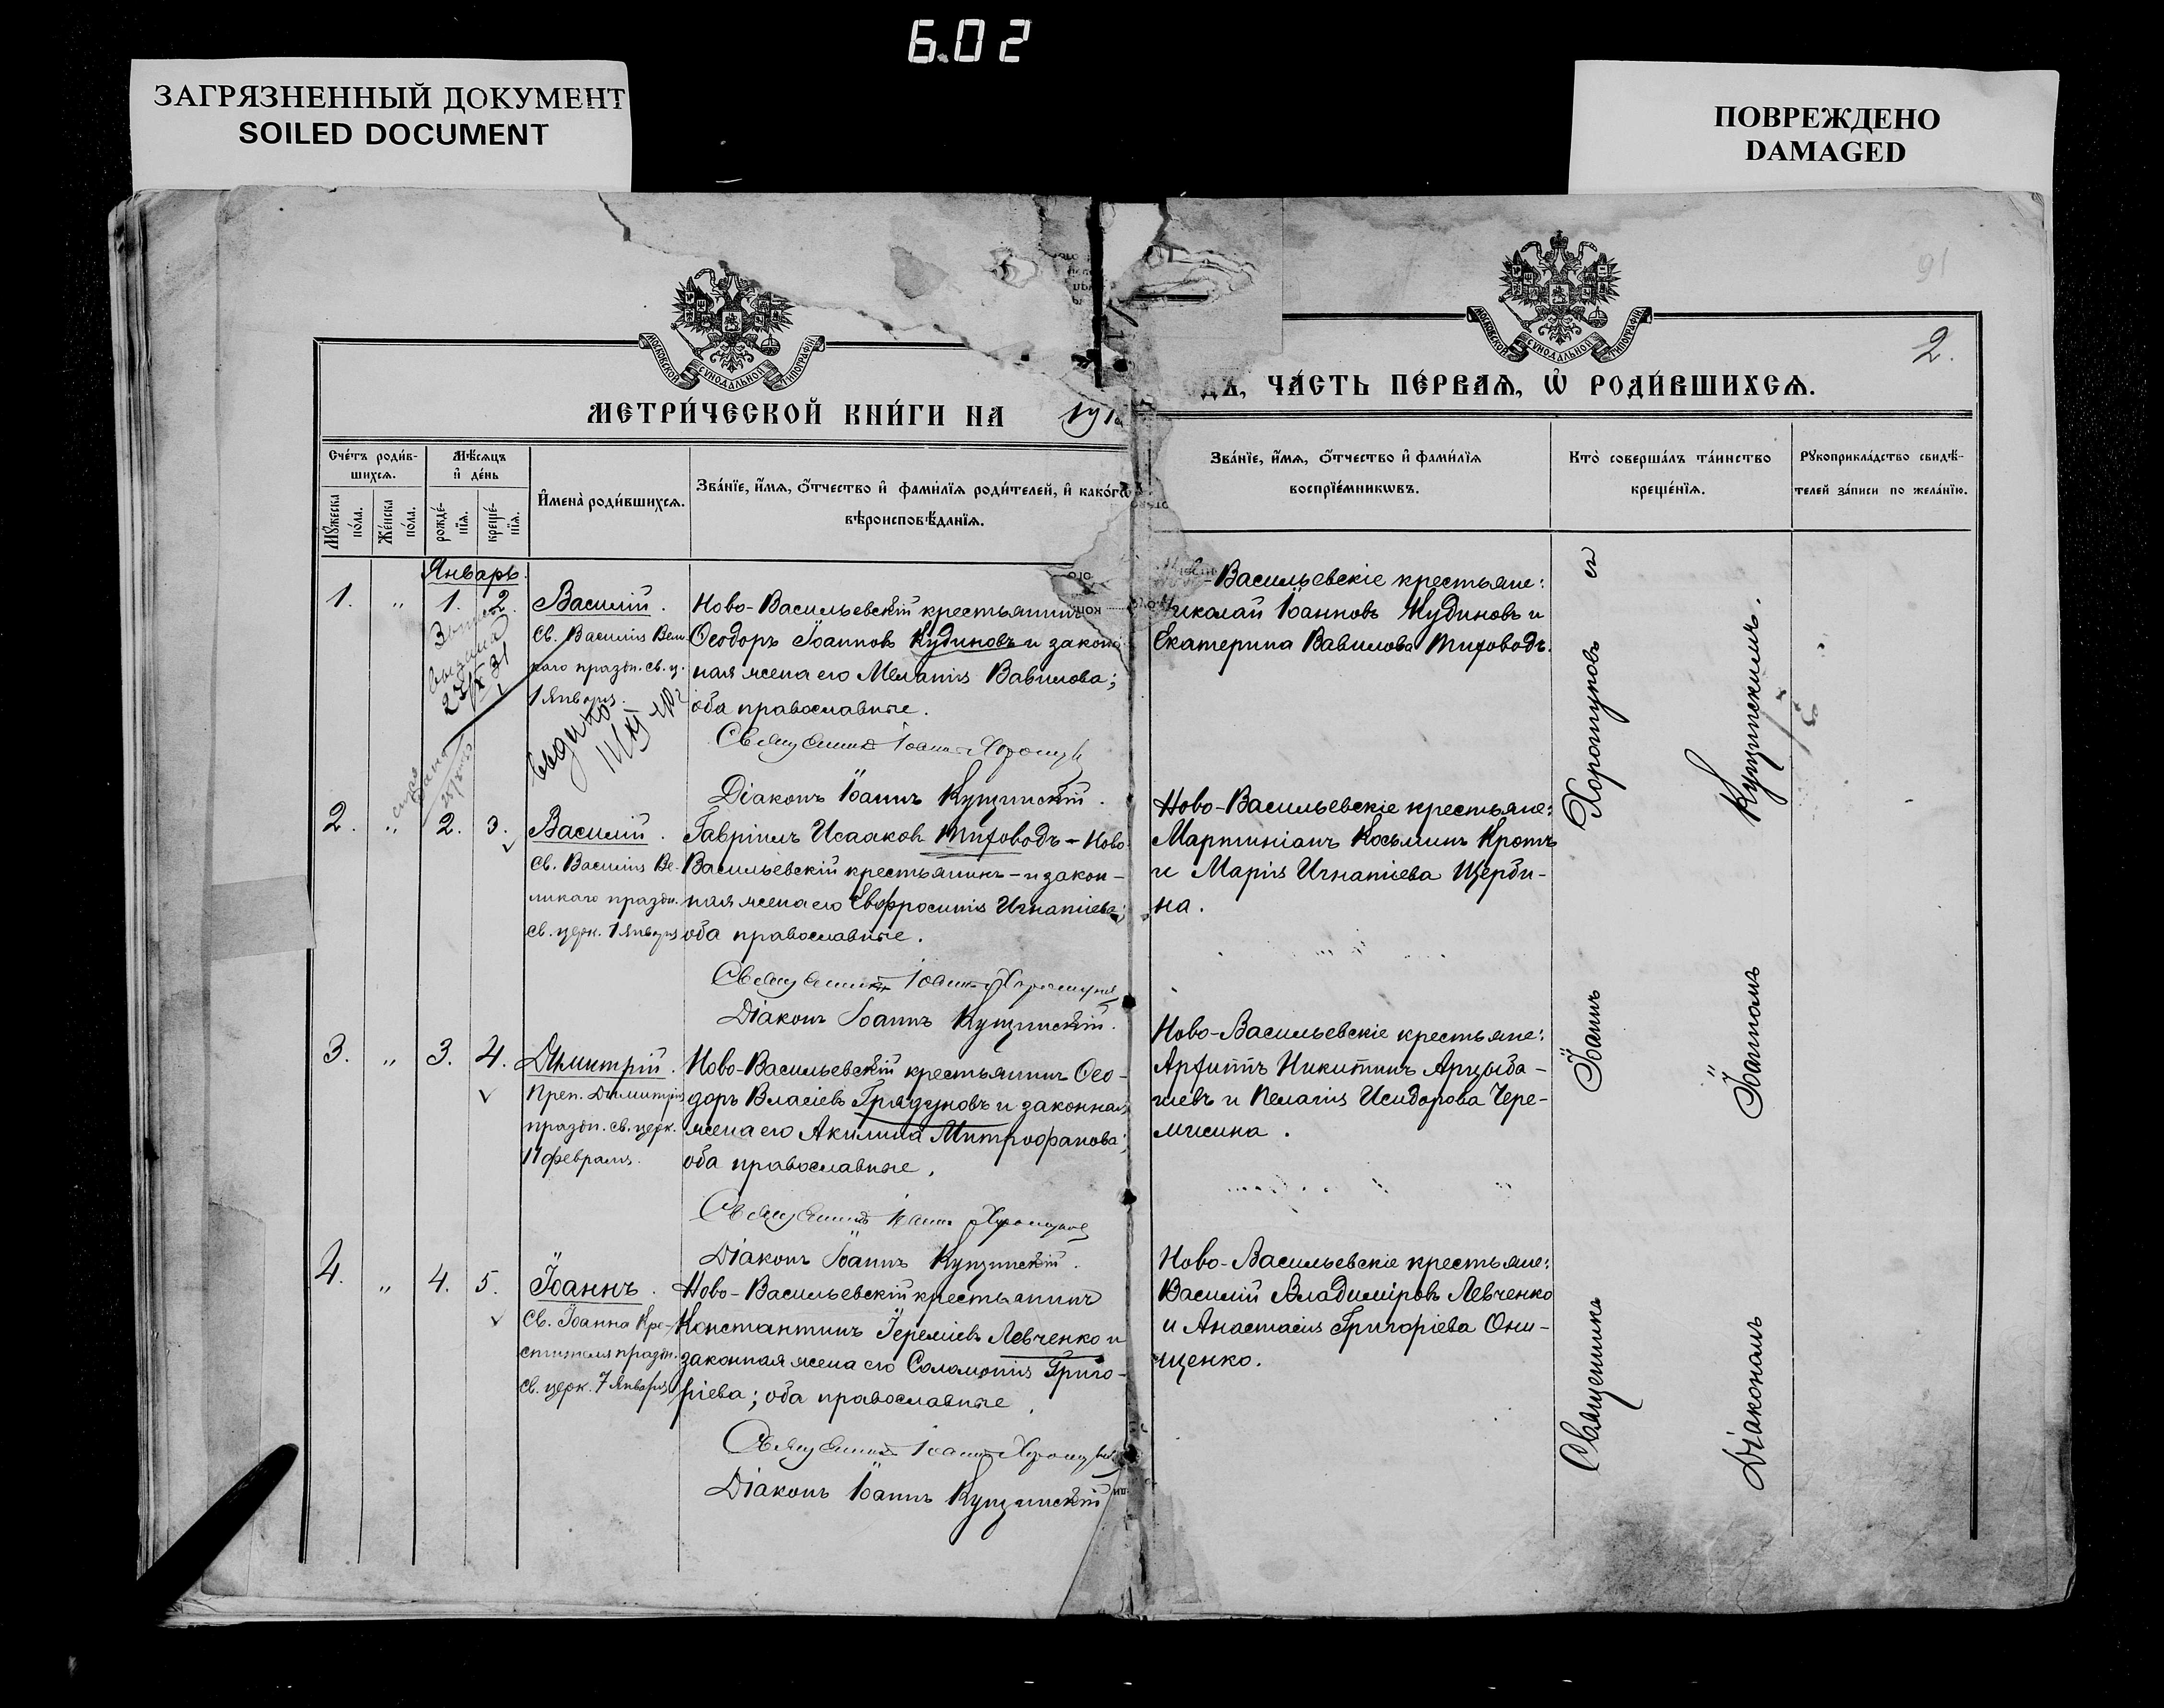 6.02
ЗАГРЯЗНЕННЫЙ ДОКУМЕНТ
SOILED DOCUMENT
ПОВРЕЖДЕНО
DAMAGED
91
2.
МОСКОВСКОЙ СѴНОДАЛЬНОЙ ТИПОГРАФІИ
МОСКОВСКОЙ СѴНОДАЛЬНОЙ ТИПОГРАФІИ
МЕТРИ́ЧЕСКОЙ КНИ́ГИ НА 191
ДЪ, ЧА́СТЬ ПЕ́РВАѦ, Ѡ҆ РОДИ́ВШИХСѦ.
Сче́тъ роди́в-
шихсѧ.
Мꙋ́жеска по́ла.
Же́нска по́ла.
Мѣ́сѧцъ
и҆ де́нь
рожде́-
нїѧ.
креще́-
нїѧ.
И҆мена̀ роди́вшихсѧ.
Зва́нїе, и҆́мѧ, ѻ҆́тчество и҆ фами́лїѧ роди́телей, и҆ како́гѡ
вѣроисповѣ́данїѧ.
Зва́нїе, и҆́мѧ, ѻ҆́тчество и҆ фами́лїѧ
воспрїе́мникѡвъ.
Кто̀ соверша́лъ та́инство
креще́нїѧ.
Рꙋкоприкла́дство свидѣ́-
телей за́писи по жела́нїю.
Январь.
1. " 1. 2. Василій.
Св. Василія Вели-
каго праздн. св. ц.
1 Января.
Ново-Васильевскій крестьянинъ
Ѳеодоръ Іоанновъ Кудиновъ и закон-
ная жена его Меланія Вавилова;
оба православные.
Священникъ Іоаннъ
Діаконъ Іоаннъ Купчинскій.
-Васильевскіе крестьяне:
Николай Іоанновъ Кудиновъ и
Екатерина Вавилова Тиховодъ.
2. " 2. 3. Василій.
Св. Василія Ве-
ликаго праздн.
св. церк. 1 Января
Гавріилъ Исааковъ Тиховодъ - Ново-
Васильевскій крестьянинъ - и закон-
ная жена его Евфросинія Игнатіева;
оба православные.
Священникъ Іоаннъ
Діаконъ Іоаннъ Купчинскій.
Ново-Васильевскіе крестьяне:
Мартиніанъ Косьминъ Кротъ
и Марія Игнатіева Щерби-
на.
3. " 3. 4. Димитрій.
Преп. Димитрія
праздн. св. церк.
11 февраля.
Ново-Васильевскій крестьянинъ Ѳео-
доръ Власіевъ Грядуновъ и законная
жена его Акилина Митрофанова;
оба православные.
Священникъ Іоаннъ
Діаконъ Іоаннъ Купчинскій.
Ново-Васильевскіе крестьяне:
Архиппъ Никитинъ Арцыба-
шевъ и Пелагія Исидорова Чере-
мисина.
4. " 4. 5. Іоаннъ.
Св. Іоанна Кре-
стителя праздн.
св. церк. 7 Января
Ново-Васильевскій крестьянинъ
Константинъ Іереміевъ Левченко и
законная жена его Соломонія Григо-
ріева; оба православные.
Священникъ Іоаннъ
Діаконъ Іоаннъ Купчинскій
Ново-Васильевскіе крестьяне:
Василій Владиміровъ Левченко
и Анастасія Григоріева Они-
щенко.
Священникъ Іоаннъ съ
Діакономъ Іоанномъ Купчинскимъ.